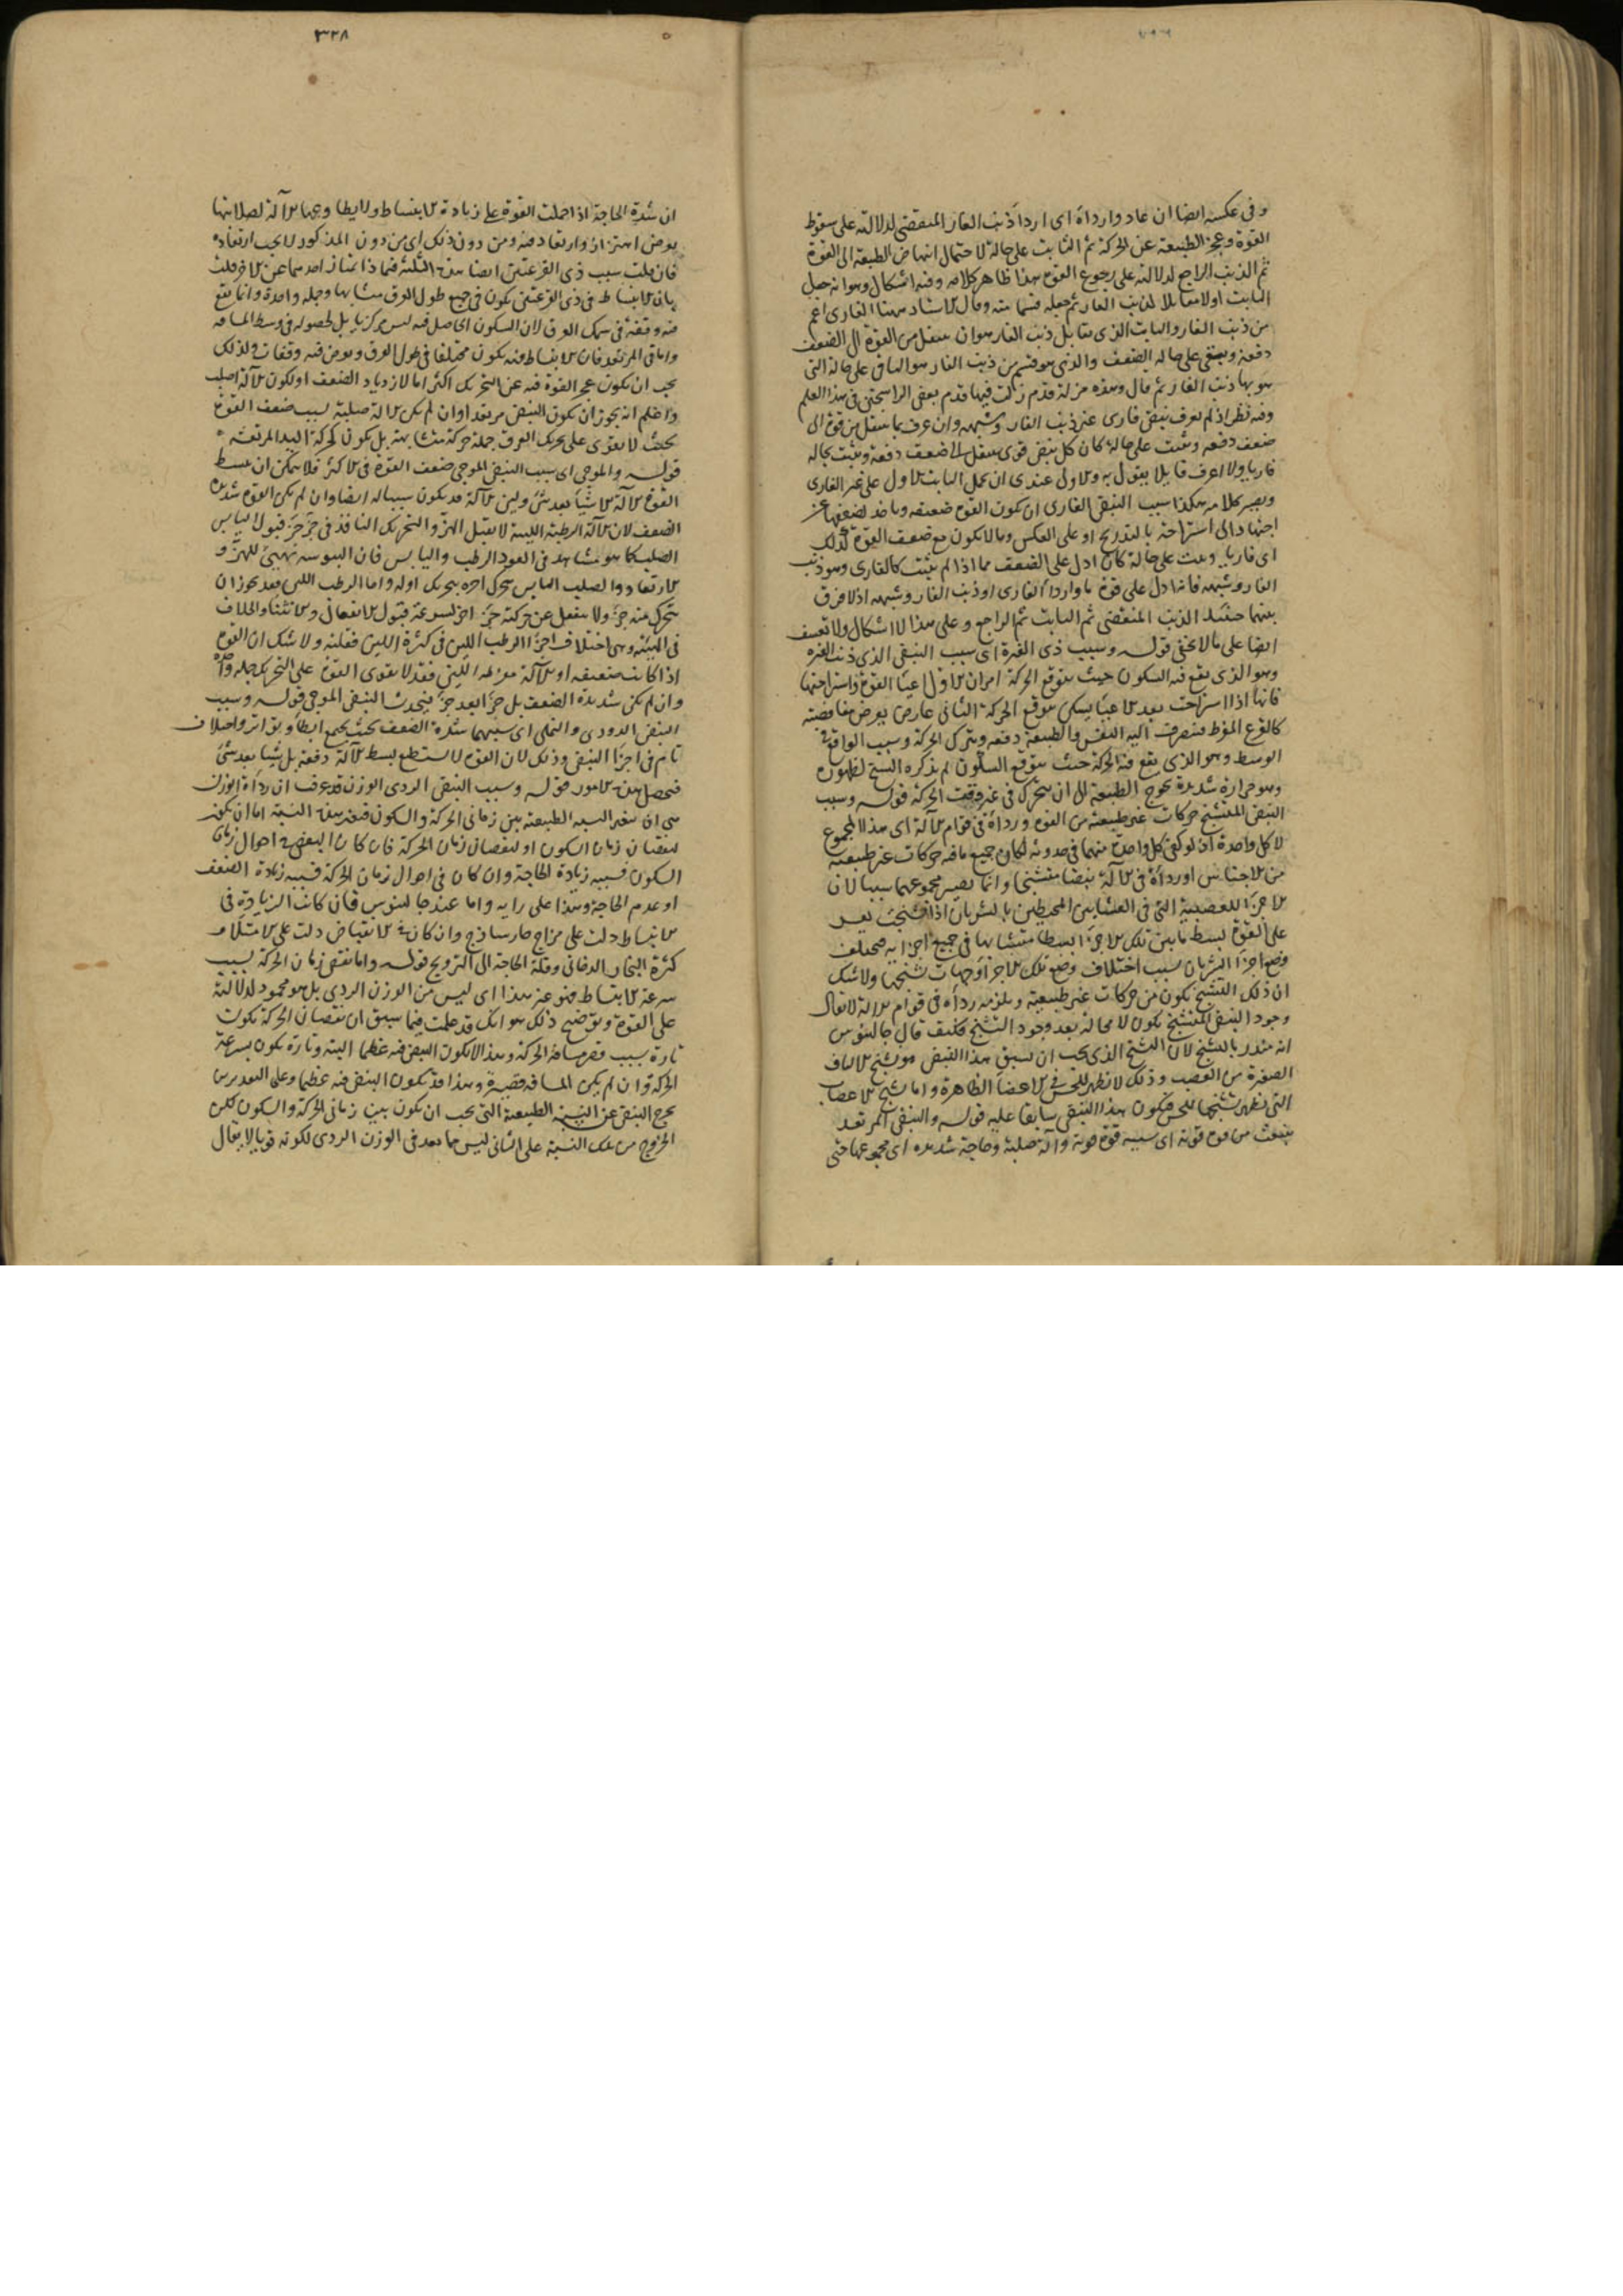 وفى عكسه ايضا ان عاد واردأه اى اردأ ذنب الفار المنقضى لدلالته على سقوط
القوة وعجز الطبيعة عن الحركة ثم الثابت على حالة لاحتمال انتهاض الطبيعة الى القوة
ثم الذنب الراجع لدلالته على رجوع القوة هذا ظاهر كلامه وفيه اشكال وهو انه جعل
الثابت اولا مقابلا لذنب الفار ثم جعله قسما منه وقال الاستاد ههنا الفارى اعم
من ذنب الفار والثابت الذى يقابل ذنب الفار هو ان ينتقل من القوة الى الضعف
دفعة ويبقى على حالة الضعف والذى هو قسم من ذنب الفار هو الباقى على حالة التى
هو بها ذنب الفار ثم قال وهذه مزلة قدم زلت فيها قدم بعض الراسخين فى هذا العلم
وفيه نظر اذ لم يعرف نبض فارى غير ذنب الفار وشبهه وان عرف بما ينتقل من قوة الى
ضعف دفعة ويثبت على حالة كان كل نبض قوى ينتقل الى ضعف دفعة ويثبت بحاله
فاريا ولا اعرف قايلا يقول به والاول عندى ان يحمل الثابت الاول على غير الفارى
ويصير كلامه هكذا سبب النبض الفارى ان يكون القوة ضعيفة وياخذ لضعفها عن
اجتهاد الى استراحة بالتدريج او على العكس وما لا يكون مع ضعف القوة كذلك
اى فاريا ويثبت على حالة كان ادل على الضعف مما اذا لم يثبت كالفارى وهو ذنب
الفار وشبهه فانه ادل على قوة ما واردأ الفارى او ذنب الفار وشبهه اذ لا فرق
بينهما حينئذ الذنب المنقضى ثم الثابت ثم الراجع وعلى هذا لا اشكال ولا تعسف
ايضا على ما لا يخفى قوله وسبب ذى الفترة اى سبب النبض الذى ذنب الفترة
وهو الذى يقع فيه السكون حيث يتوقع الحركة امران الاول اعيا القوة واستراحتها
فانها اذا استراحت بعد الاعيا يسكن موقع الحركة الثانى عارض يعرض مغافصة
كالفزع المفرط فتنصرف اليه النفس والطبيعة دفعة ويترك الحركة وسبب الواقع فى
الوسط وهو الذى يقع فيه الحركة حيث يتوقع السكون لم يذكره الشيخ لظهوره
وهو حرارة شديدة تحوج الطبيعة الى ان يتحرك فى غير وقت الحركة قوله وسبب
النبض المتشنج حركات غير طبيعية من القوة ورداة فى قوام الآلة اى هذا المجموع
لا كل واحدة اذ لو كفى كل واحدة منهما فى حدوثه لكان جميع ما فيه حركات غير طبيعية
من الاجناس او رداة فى الآلة نبضا متشنجا وانما يصير مجموعهما سببا لان
الاجزا العصبية التى فى الغشايين المحيطين بالشريان اذا تشنجت يعسر
على القوة بسط ما بين تلك الاجزا بسطا متشابها فى جميع اجزايه فيختلف
وضع اجزا الشريان بسبب اختلاف وضع تلك الاجزا وجهات تشنجها ولا شك
ان ذلك التشنج يكون من حركات غير طبيعية ويلزمه رداة فى قوام الآلة لا يقال
وجود النبض المتشنج يكون لا محالة بعد وجود التشنج فكيف قال جالينوس
انه منذر بالتشنج لان التشنج الذى يجب ان يسبق هذا النبض هو تشنج الالياف
الصغيرة من العصب وذلك لا يظهر للحس فى الاعضا الظاهرة واما تشنج الاعصاب
التى يظهر تشنجها للحس فيكون هذا النبض سابقا عليه قوله والنبض المرتعد
ينبعث من قوة قوية اى سببه قوة قوية وآلة صلبة وحاجة شديدة اى مجموعها حتى
٣٢٨
ان شدة الحاجة اذا حملت القوة على زيادة الانبساط ولا يطاوعها الآلة لصلابتها
يعرض اهتزاز وارتعاد منه ومن دون ذلك اى من دون المذكور لا يجب ارتعاده
فان قلت سبب ذى القرعتين ايضا هذه الثلثة فبماذا يمتاز احدهما عن الاخر قلت
بان الانبساط فى ذى القرعتين يكون فى جميع طول العرق متشابها وجملة واحدة وانما يقع
فيه وقفة فى سمك العرق لان السكون الحاصل فيه ليس مركزيا بل لحصوله فى وسط المسافة
واما فى المرتعد فان الانبساط فيه يكون مختلفا فى طول العرق ويعرض فيه وقفات ولذلك
يجب ان يكون عجز القوة فيه عن التحريك اكثر اما لازدياد الضعف او لكون الآلة اصلب
واعلم انه يجوز ان يكون النبض مرتعدا وان لم يكن الآلة صلبة بسبب ضعف القوة
بحيث لا يقوى على تحريك العرق جملة حركة متشابهة بل يكون كحركة اليد المرتعشة
قوله والموجى اى سبب النبض الموجى ضعف القوة فى الاكثر فلا يمكن ان يبسط
القوة الآلة الا شيئا بعد شئ ولين الآلة قد يكون سببا له ايضا وان لم يكن القوة شديدة
الضعف لان الآلة الرطبة اللينة لا يقبل الهز والتحريك النافذ فى جزء جزء قبول اليابس
الصلب كما هو مشاهد فى العود الرطب واليابس فان اليبوسة تهيئ للهز و
الارتعاد والصلب اليابس يتحرك اخره بتحريك اوله واما الرطب اللين فقد يجوز ان
يتحرك منه جزء ولا ينفعل عن حركته جزء اخر لسرعة قبوله الانفعال والانثنا والخلاف
فى الهيئة وهى اختلاف اجزا الرطب اللين فى كثرة اللين وقلته ولا شك ان القوة
اذا كانت ضعيفة او الآلة مفرطة اللين فقد لا يقوى القوة على التحريك جملة واحدة
وان لم يكن شديدة الضعف بل جزا بعد جزء فيحدث النبض الموجى قوله وسبب
النبض الدودى والنملى اى سببهما شدة الضعف بحيث يجتمع ابطأ وتواتر واختلاف
تام فى اجزا النبض وذلك لان القوة لا يستطيع بسط الآلة دفعة بل شيئا بعد شئ
فيحصل هذه الامور قوله وسبب النبض الردى الوزن قد عرف ان رداة الوزن
هى ان يتغير النسبة الطبيعية بين زمانى الحركة والسكون فتغير هذه النسبة اما ان يكون
لنقصان زمان السكون او لنقصان زمان الحركة فان كان النقص فى احوال زمان
السكون فسببه زيادة الحاجة وان كان فى احوال زمان الحركة فسببه زيادة الضعف
او عدم الحاجة وهذا على رايه واما عند جالينوس فان كانت الزيادة فى
الانبساط دلت على مزاج حار ساذج وان كان فى الانقباض دلت على الامتلاء
كثرة البخار الدخانى وقلة الحاجة الى الترويح قوله واما نقص زمان الحركة بسبب
سرعة الانبساط فهو غير هذا اى ليس من الوزن الردى بل هو محمود لدلالته
على القوة وتوضيح ذلك هو انك قد علمت فيما سبق ان نقصان الحركة يكون
تارة بسبب قصر مسافة الحركة وهذا لا يكون النبض فيه عظيما البتة وتارة يكون بسرعة
الحركة وان لم يكن المسافة قصيرة وهذا قد يكون النبض فيه عظيما وعلى التقديرين
يخرج النبض عن النسبة الطبيعية التى يجب ان يكون بين زمانى الحركة والسكون لكن
الخروج من تلك النسبة على الثانى ليس مما يعد فى الوزن الردى لكونه قويا لا يقال